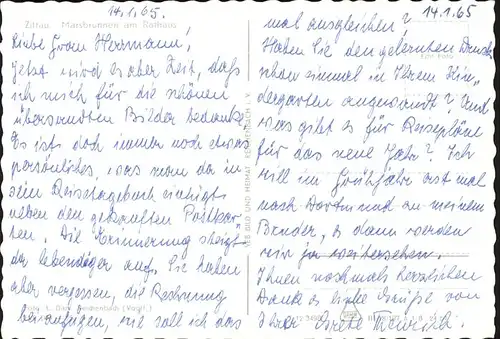 14.1.65.
Zittau. Marsbrunnen am Rathaus
Liebe Frau Herrmann!
Jetzt wird es aber Zeit, daß
ich mich für die schönen
übersandten Bilder bedanke.
Es ist doch immer noch etwas
persönliches, was man da in
sein Reisetagebuch einfügt
neben den gekauften Postkar-
ten. Die Erinnerung steigt
da lebendiger auf. Sie haben
aber vergessen, die Rechnung
beizufügen, wie soll ich das
Reichenbach (Vogtl.)
VEB BILD UND HEIMAT REICHENBACH I. V.
14.1.65
mal ausgleichen?
Haben Sie den gelernten
schon einmal in Ihrem Kin-
dergarten angewandt? Und
was gibt es für Reisepläne
für das neue Jahr? Ich
will im Frühjahr erst mal
nach Dortmund zu meinem
Bruder, so dann werden
wir ja weitersehen.
Ihnen nochmals herzlichen
Dank u. liebe Grüße von
Ihrer Grete